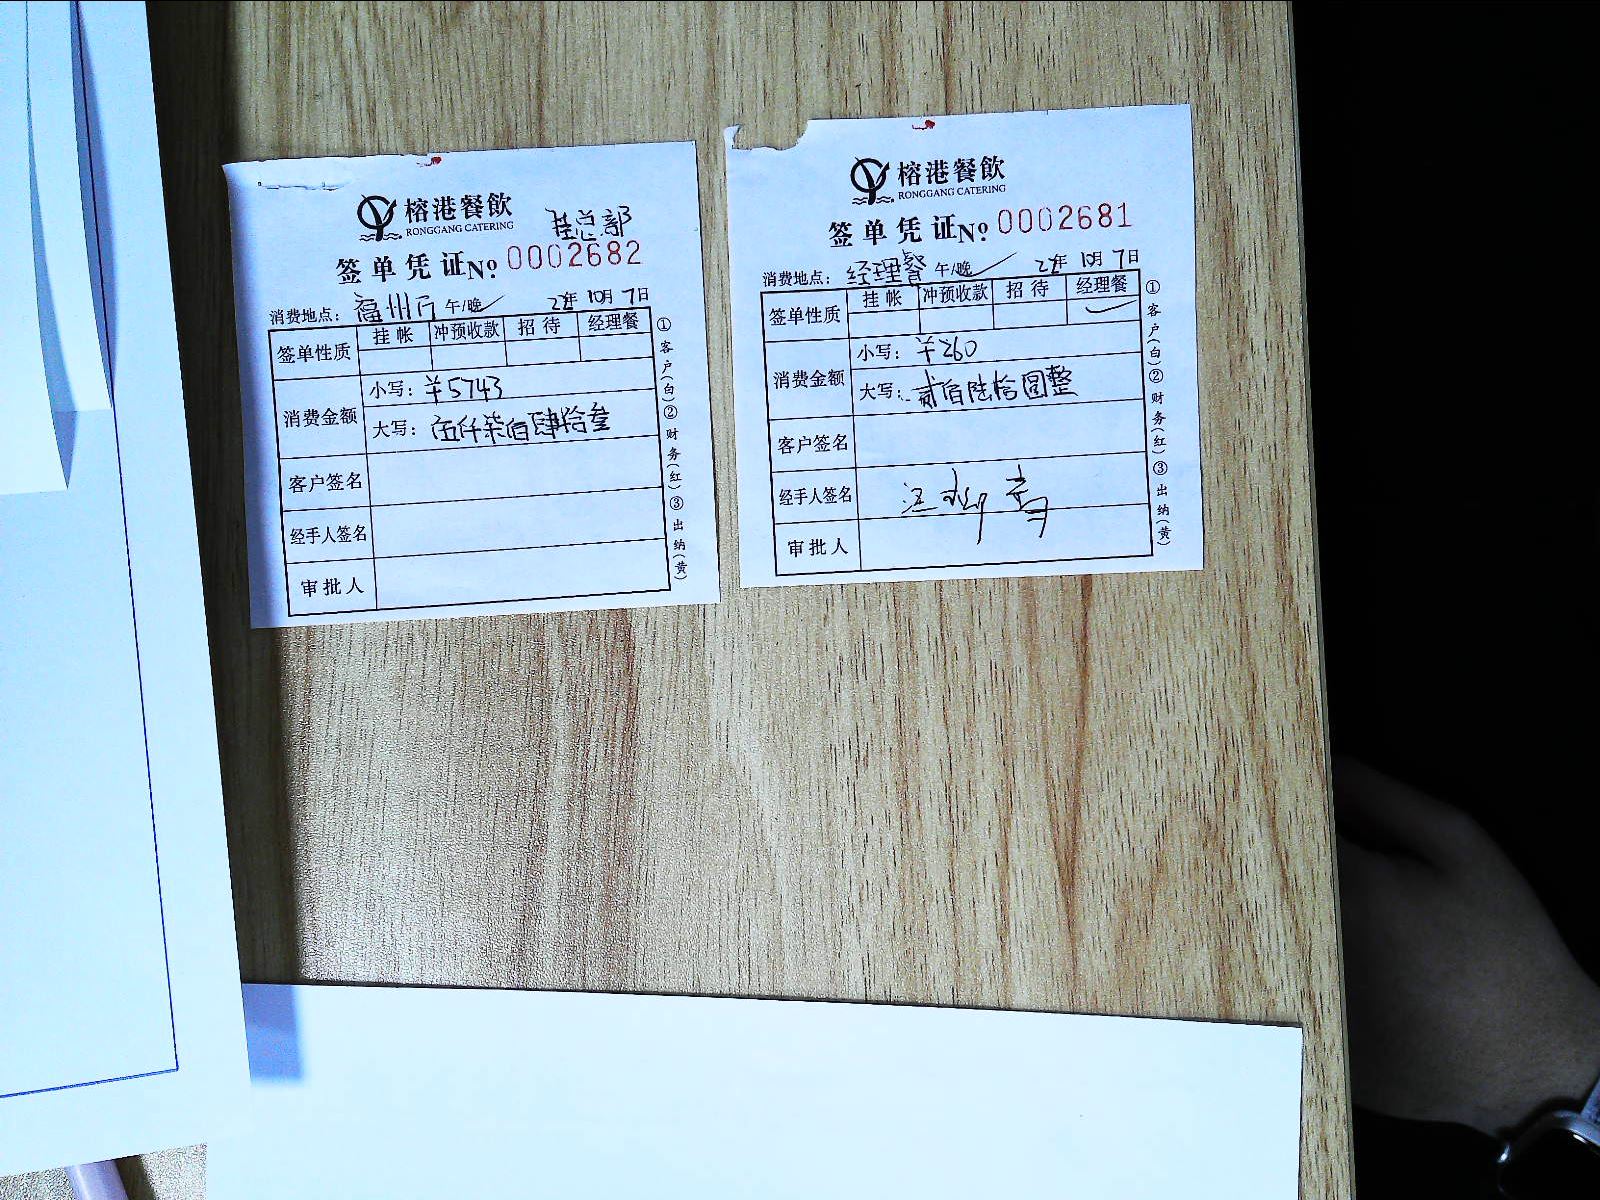 榕港餐飲
RONGGANG CATERING
挂总部
签单凭证No 0002682
消费地点：福州厅 午/晚✓ 22年 10月 7日
签单性质 挂帐 冲预收款 招待 经理餐
消费金额
小写：¥5743
大写：伍仟柒佰肆拾叁
客户签名
经手人签名
审批人
①客户(白)②财务(红)③出纳(黄)
榕港餐飲
RONGGANG CATERING
签单凭证No 0002681
消费地点：经理餐 午/晚✓ 22年 10月 7日
签单性质 挂帐 冲预收款 招待 经理餐
✓
消费金额
小写：¥260
大写：贰佰陆拾圆整
客户签名
经手人签名
审批人
①客户(白)②财务(红)③出纳(黄)